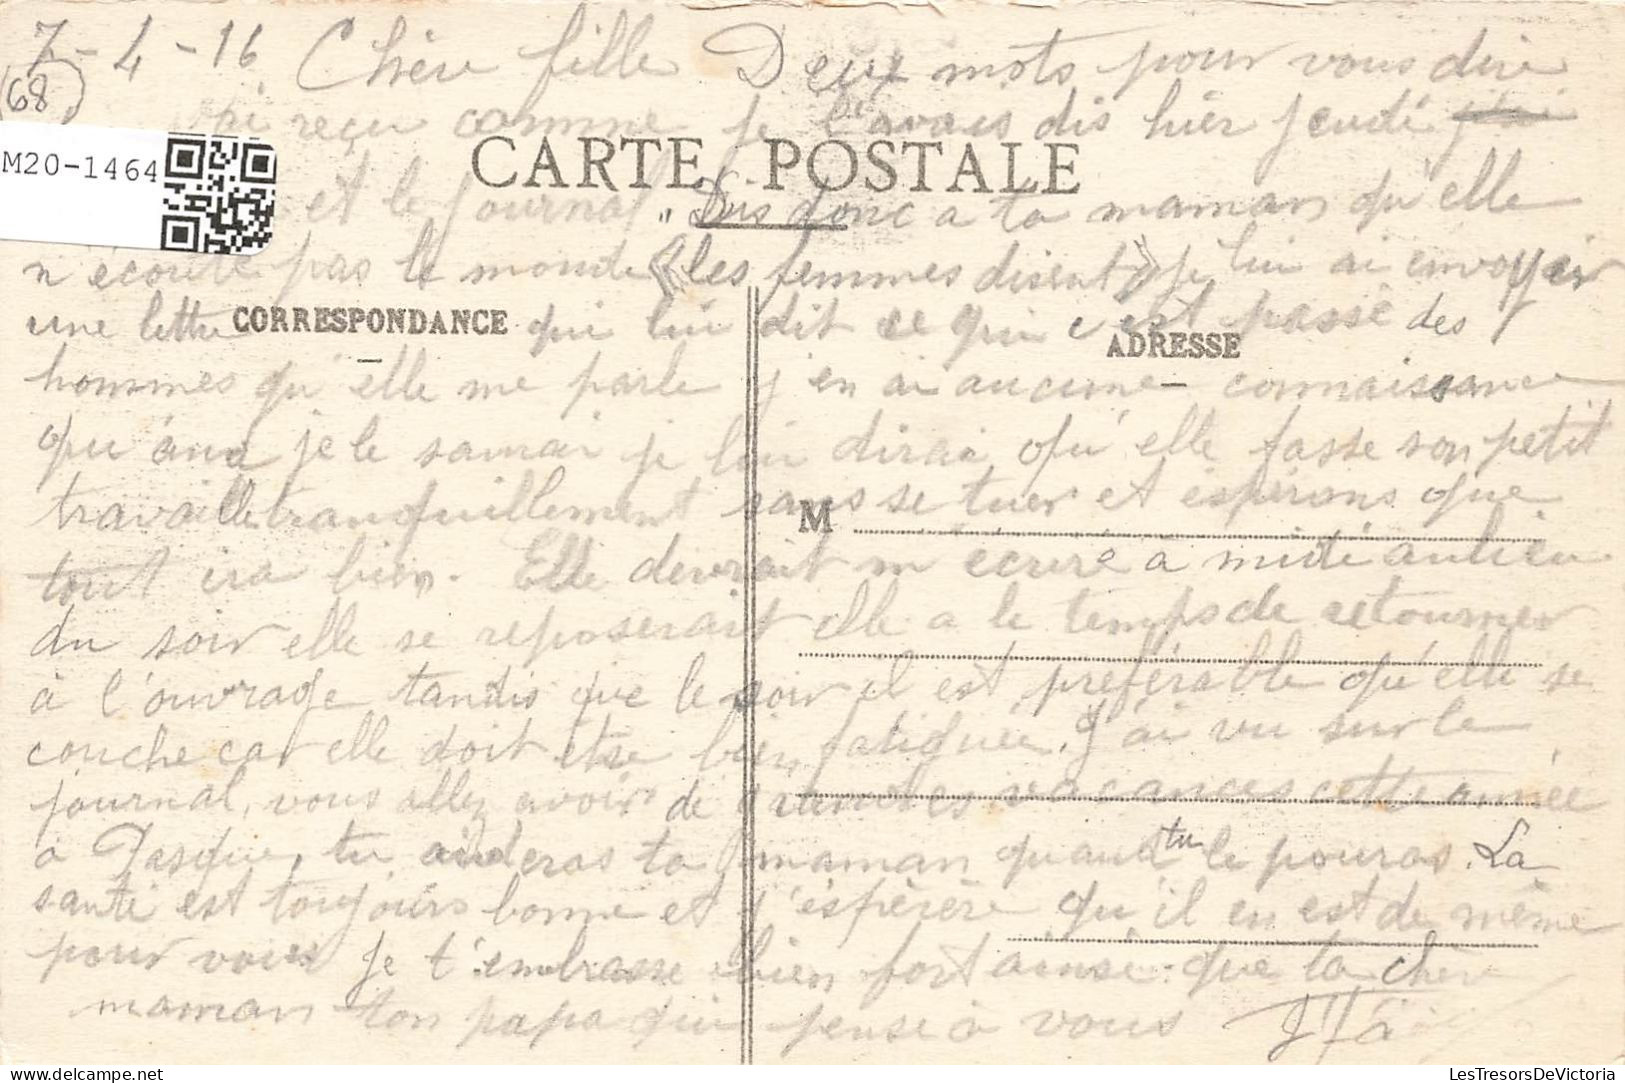 7-4-16 Chère fille Deux mots pour vous dire
(68)
ai reçu comme je l'avais dis hier jeudi j'ai
M20-1464
CARTE POSTALE
et le journal " Dis donc a ta maman qu'elle
n'écoute pas le monde (les femmes disent) je lui ai envoyer
une lettre qui lui dit ce qui c'est passé des
CORRESPONDANCE
ADRESSE
hommes qu'elle me parle j'en ai aucune connaissance
qu'and je le samai je lui dirai qu'elle fasse son petit
travaille tranquillement sans se tuer et espérons que
M
tout ira bien. Elle devrait m'écrire à midi aulieu
du soir elle se reposerait elle a le temps de retourner
à l'ouvrage tandis que le soir il est préférable qu'elle se
couche car elle doit etre bien fatiguée. J'ai vu sur le
journal, vous allez avoir de grandes vacances cette année
a Pasque, tu aideras ta maman quand tu le pouras. La
santé est toujours bonne et j'espérère qu'il en est de même
pour vous je t'embrasse bien fort ainsi que ta chère
maman ton papa qui pense à vous
LesTresorsDeVictoria